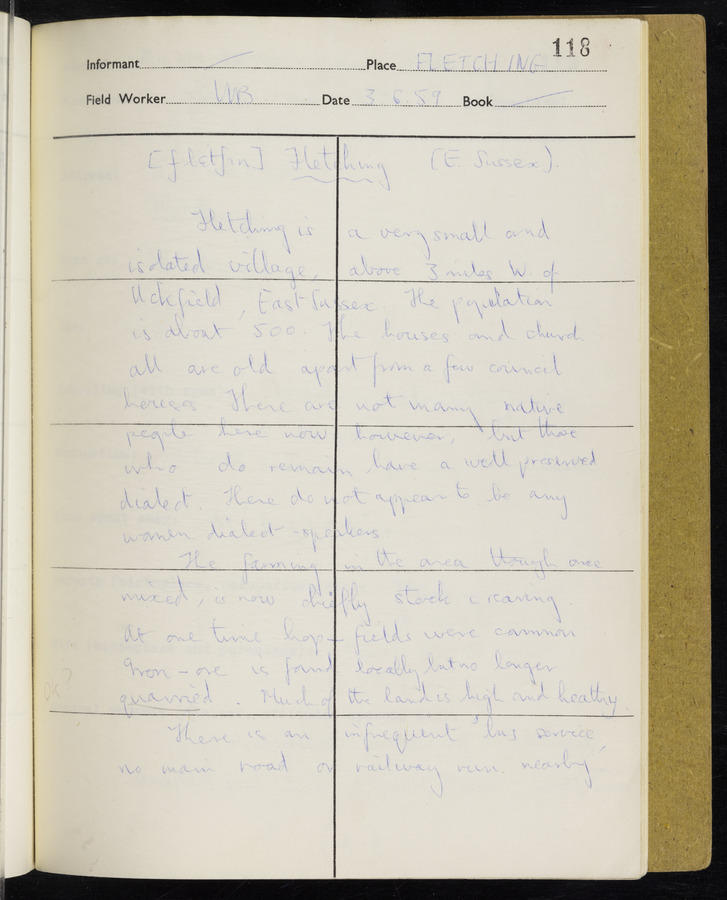 118
Informant Place FLETCHING
Field Worker WB Date 3.6.59 Book
[flɛtʃin] Fletching (E. Sussex).
Fletching is a very small and
isolated village, above 3 miles W. of
Uckfield, East Sussex. The population
is about 500. The houses and church
all are old apart from a few council
houses. There are not many native
people here now however, but those
who do remain have a well preserved
dialect. There do not appear to be any
women dialect-speakers
The farming in the area though once
mixed, is now chiefly stock rearing.
At one time hop-fields were common
Iron-ore is found locally but no longer
OK?
quarried. Much of the land is high and heathy.
There is an infrequent bus service,
no main road or railway run nearby